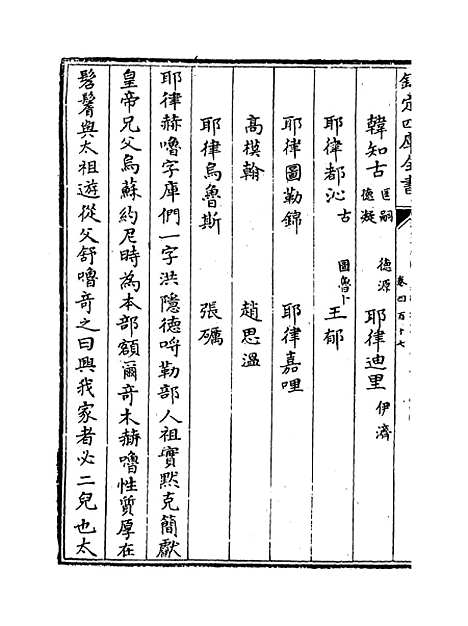 欽定四庫全書
卷四百十七
韓知古 匡嗣 德源 德凝 耶律迪里 伊濟
耶律都沁 古 圖魯卜 王郁
耶律圖勒錦 耶律嘉哩
高模翰 趙思温
耶律烏魯斯 張礪
耶律赫嚕字庫們一字洪隱德呼勒部人祖實默克簡獻
皇帝兄父烏蘇約尼時為本部額爾奇木赫嚕性質厚在
髫鬌與太祖遊從父舒嚕竒之曰興我家者必二兒也太